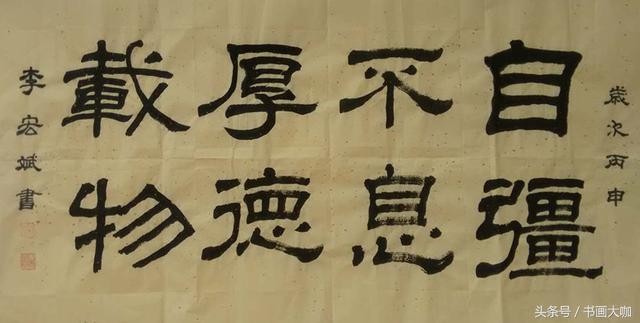 歲次丙申
自彊
不息
厚德
載物
李宏斌書
头条号 / 书画大咖